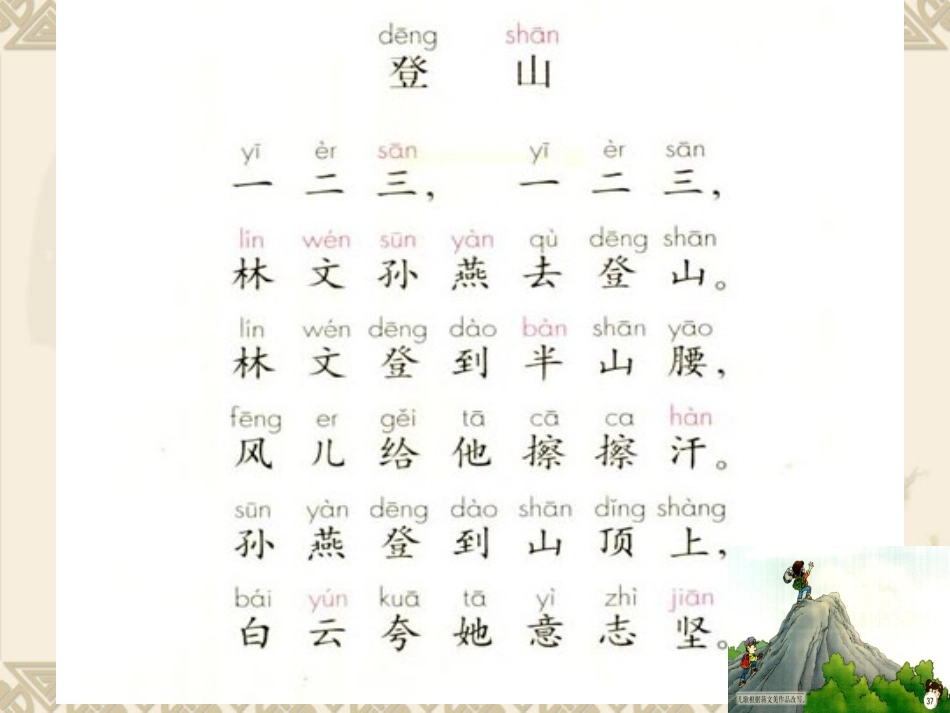 dēng shān
登 山
yī èr sān yī èr sān
一 二 三， 一 二 三，
lín wén sūn yàn qù dēng shān
林 文 孙 燕 去 登 山。
lín wén dēng dào bàn shān yāo
林 文 登 到 半 山 腰，
fēng er gěi tā cā ca hàn
风 儿 给 他 擦 擦 汗。
sūn yàn dēng dào shān dǐng shàng
孙 燕 登 到 山 顶 上，
bái yún kuā tā yì zhì jiān
白 云 夸 她 意 志 坚。
儿歌根据蒋文美作品改写。
37